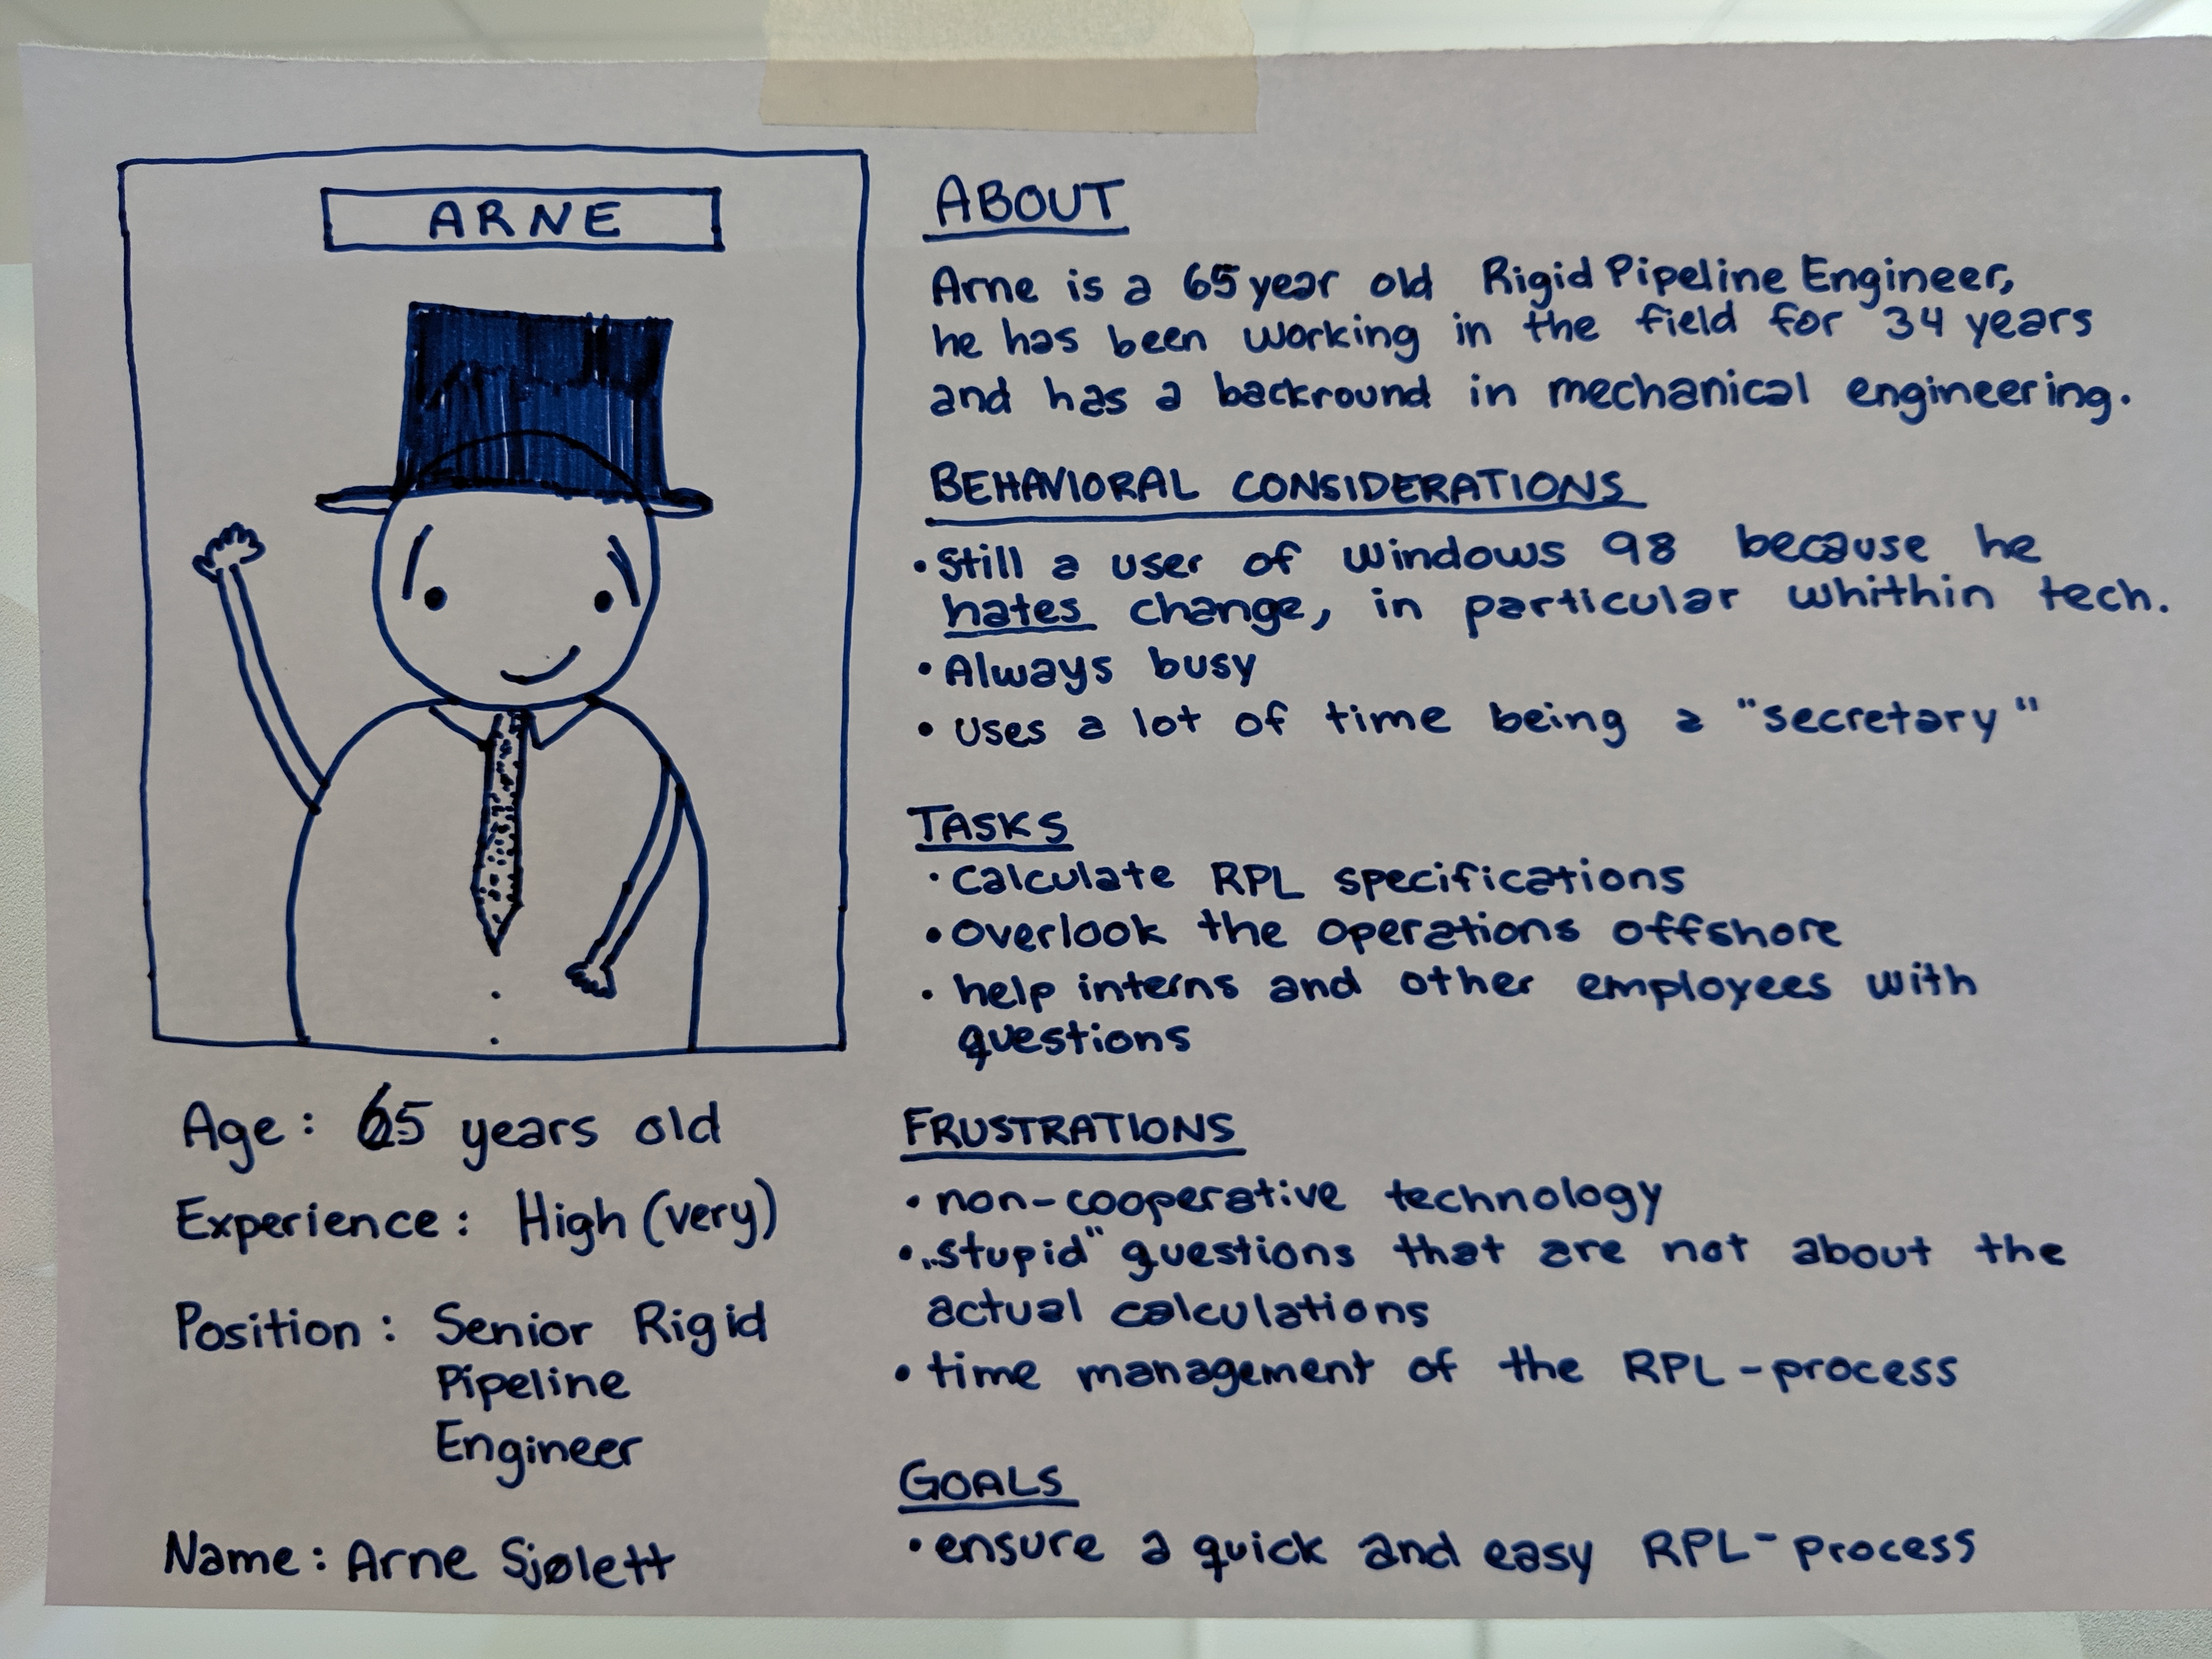 ARNE
Age: 65 years old
Experience: High (very)
Position: Senior Rigid
Pipeline
Engineer
Name: Arne Sjølett
ABOUT
Arne is a 65 year old Rigid Pipeline Engineer,
he has been working in the field for 34 years
and has a backround in mechanical engineering.
BEHAVIORAL CONSIDERATIONS
• Still a user of windows 98 because he
hates change, in particular whithin tech.
• Always busy
• Uses a lot of time being a "secretary"
TASKS
• Calculate RPL specifications
• Overlook the operations offshore
• help interns and other employees with
questions
FRUSTRATIONS
• non-cooperative technology
• „stupid" questions that are not about the
actual calculations
• time management of the RPL-process
GOALS
• ensure a quick and easy RPL-process